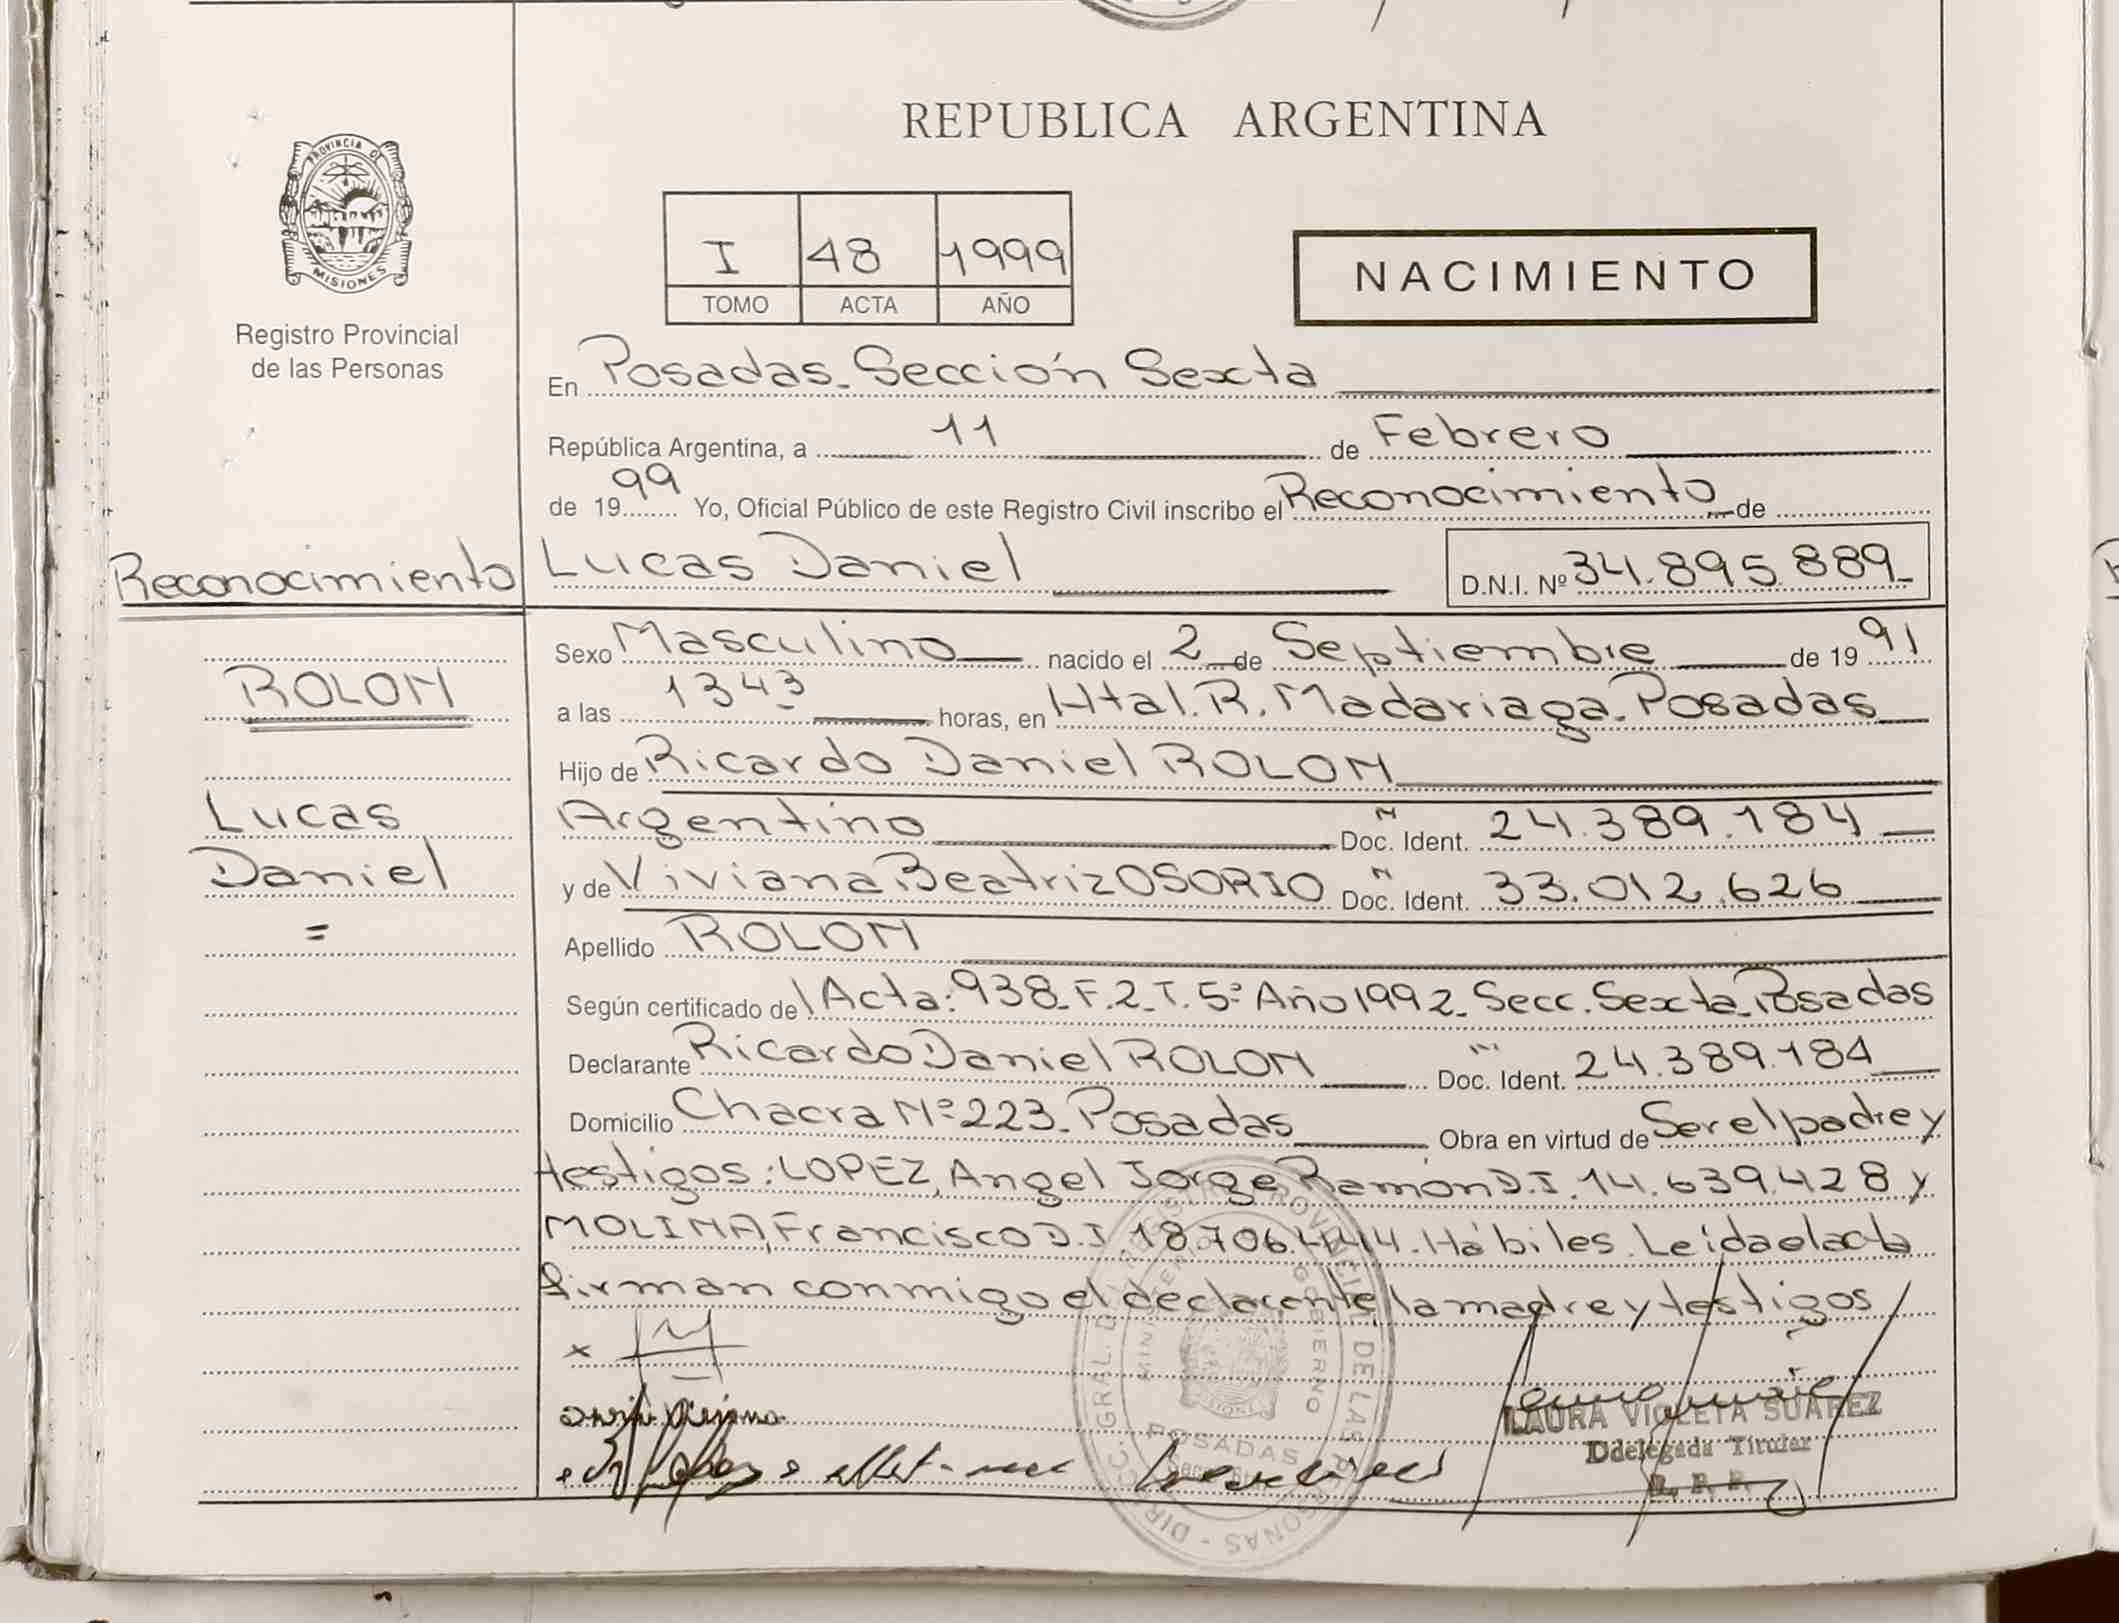 REPUBLICA ARGENTINA
PROVINCIA DE
MISIONES
Registro Provincial
de las Personas
I 48 1999
TOMO ACTA AÑO
NACIMIENTO
En Posadas. Sección Sexta
República Argentina, a 11 de Febrero
de 1999 Yo, Oficial Público de este Registro Civil inscribo el Reconocimiento de
Reconocimiento
Lucas Daniel D.N.I. Nº 34.895.889
ROLON
Lucas
Daniel
=
Sexo Masculino nacido el 2 de Septiembre de 1991
a las 1343 horas, en Htal. R. Madariaga. Posadas
Hijo de Ricardo Daniel ROLON
Argentino Doc. Ident. 24.389.184
y de Viviana Beatriz OSORIO Doc. Ident. 33.012.626
Apellido ROLON
Según certificado del Acta: 938. F. 2. T. 5º Año 1992. Secc. Sexta. Posadas
Declarante Ricardo Daniel ROLON Doc. Ident. 24.389.184
Domicilio Chacra Nº 223. Posadas Obra en virtud de Ser el padre y
testigos: LOPEZ, Angel Jorge Ramón D.I. 14.639.428 y
MOLINA, Francisco D.I. 18.706.444. Hábiles. Leída el acta
firman conmigo el declarante, la madre y testigos
LAURA VIOLETA SUAREZ
Ddelegada Titular
DIRECC. GRAL. DEL REGISTRO PROVINCIAL DE LAS PERSONAS
MINISTERIO GOBIERNO
POSADAS